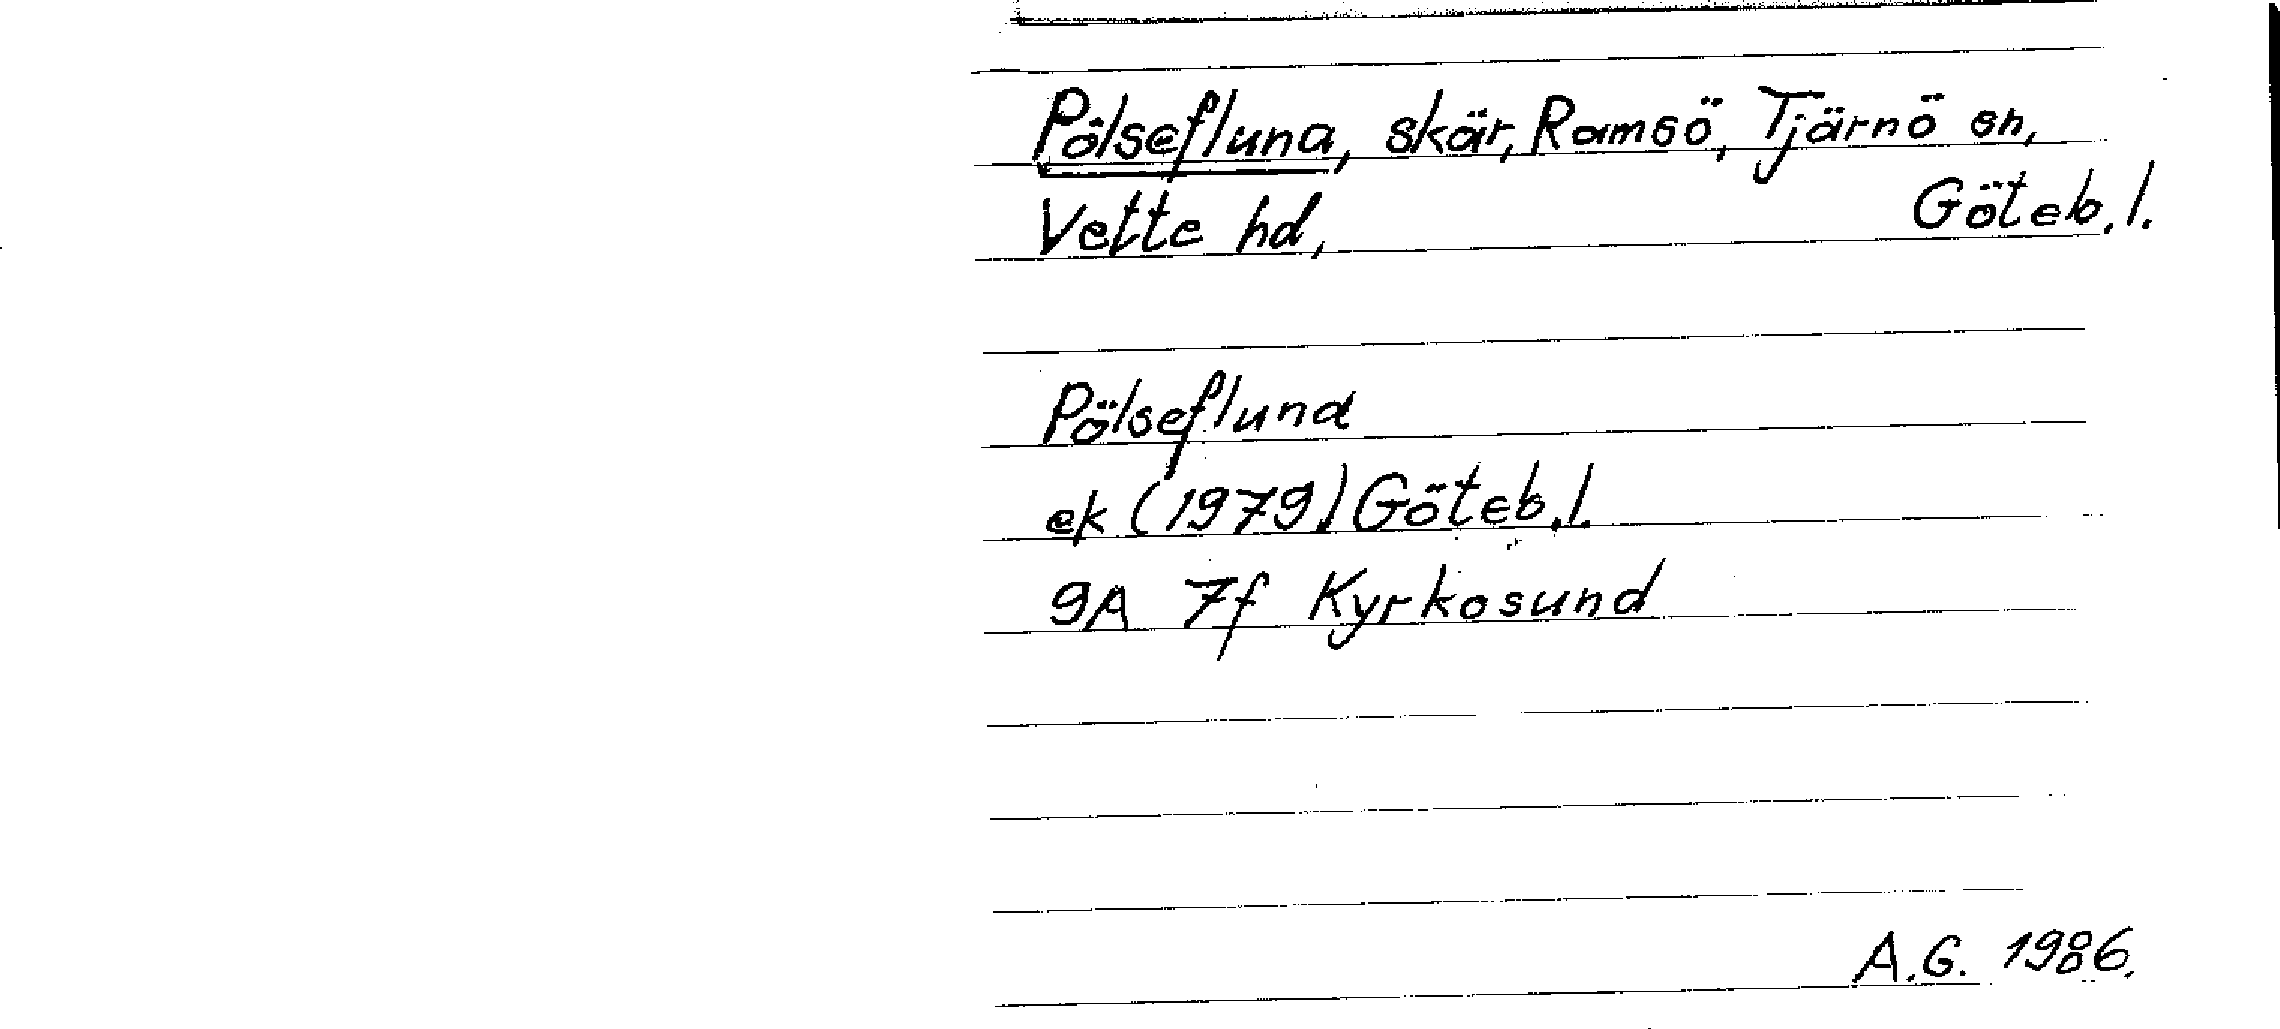 Pölsefluna, skär, Ramsö, Tjärnö sn,
Vette hd, Göteb. l.
Pölseflund
ek (1979) Göteb. l.
9A 7f Kyrkosund
A.G. 1986.